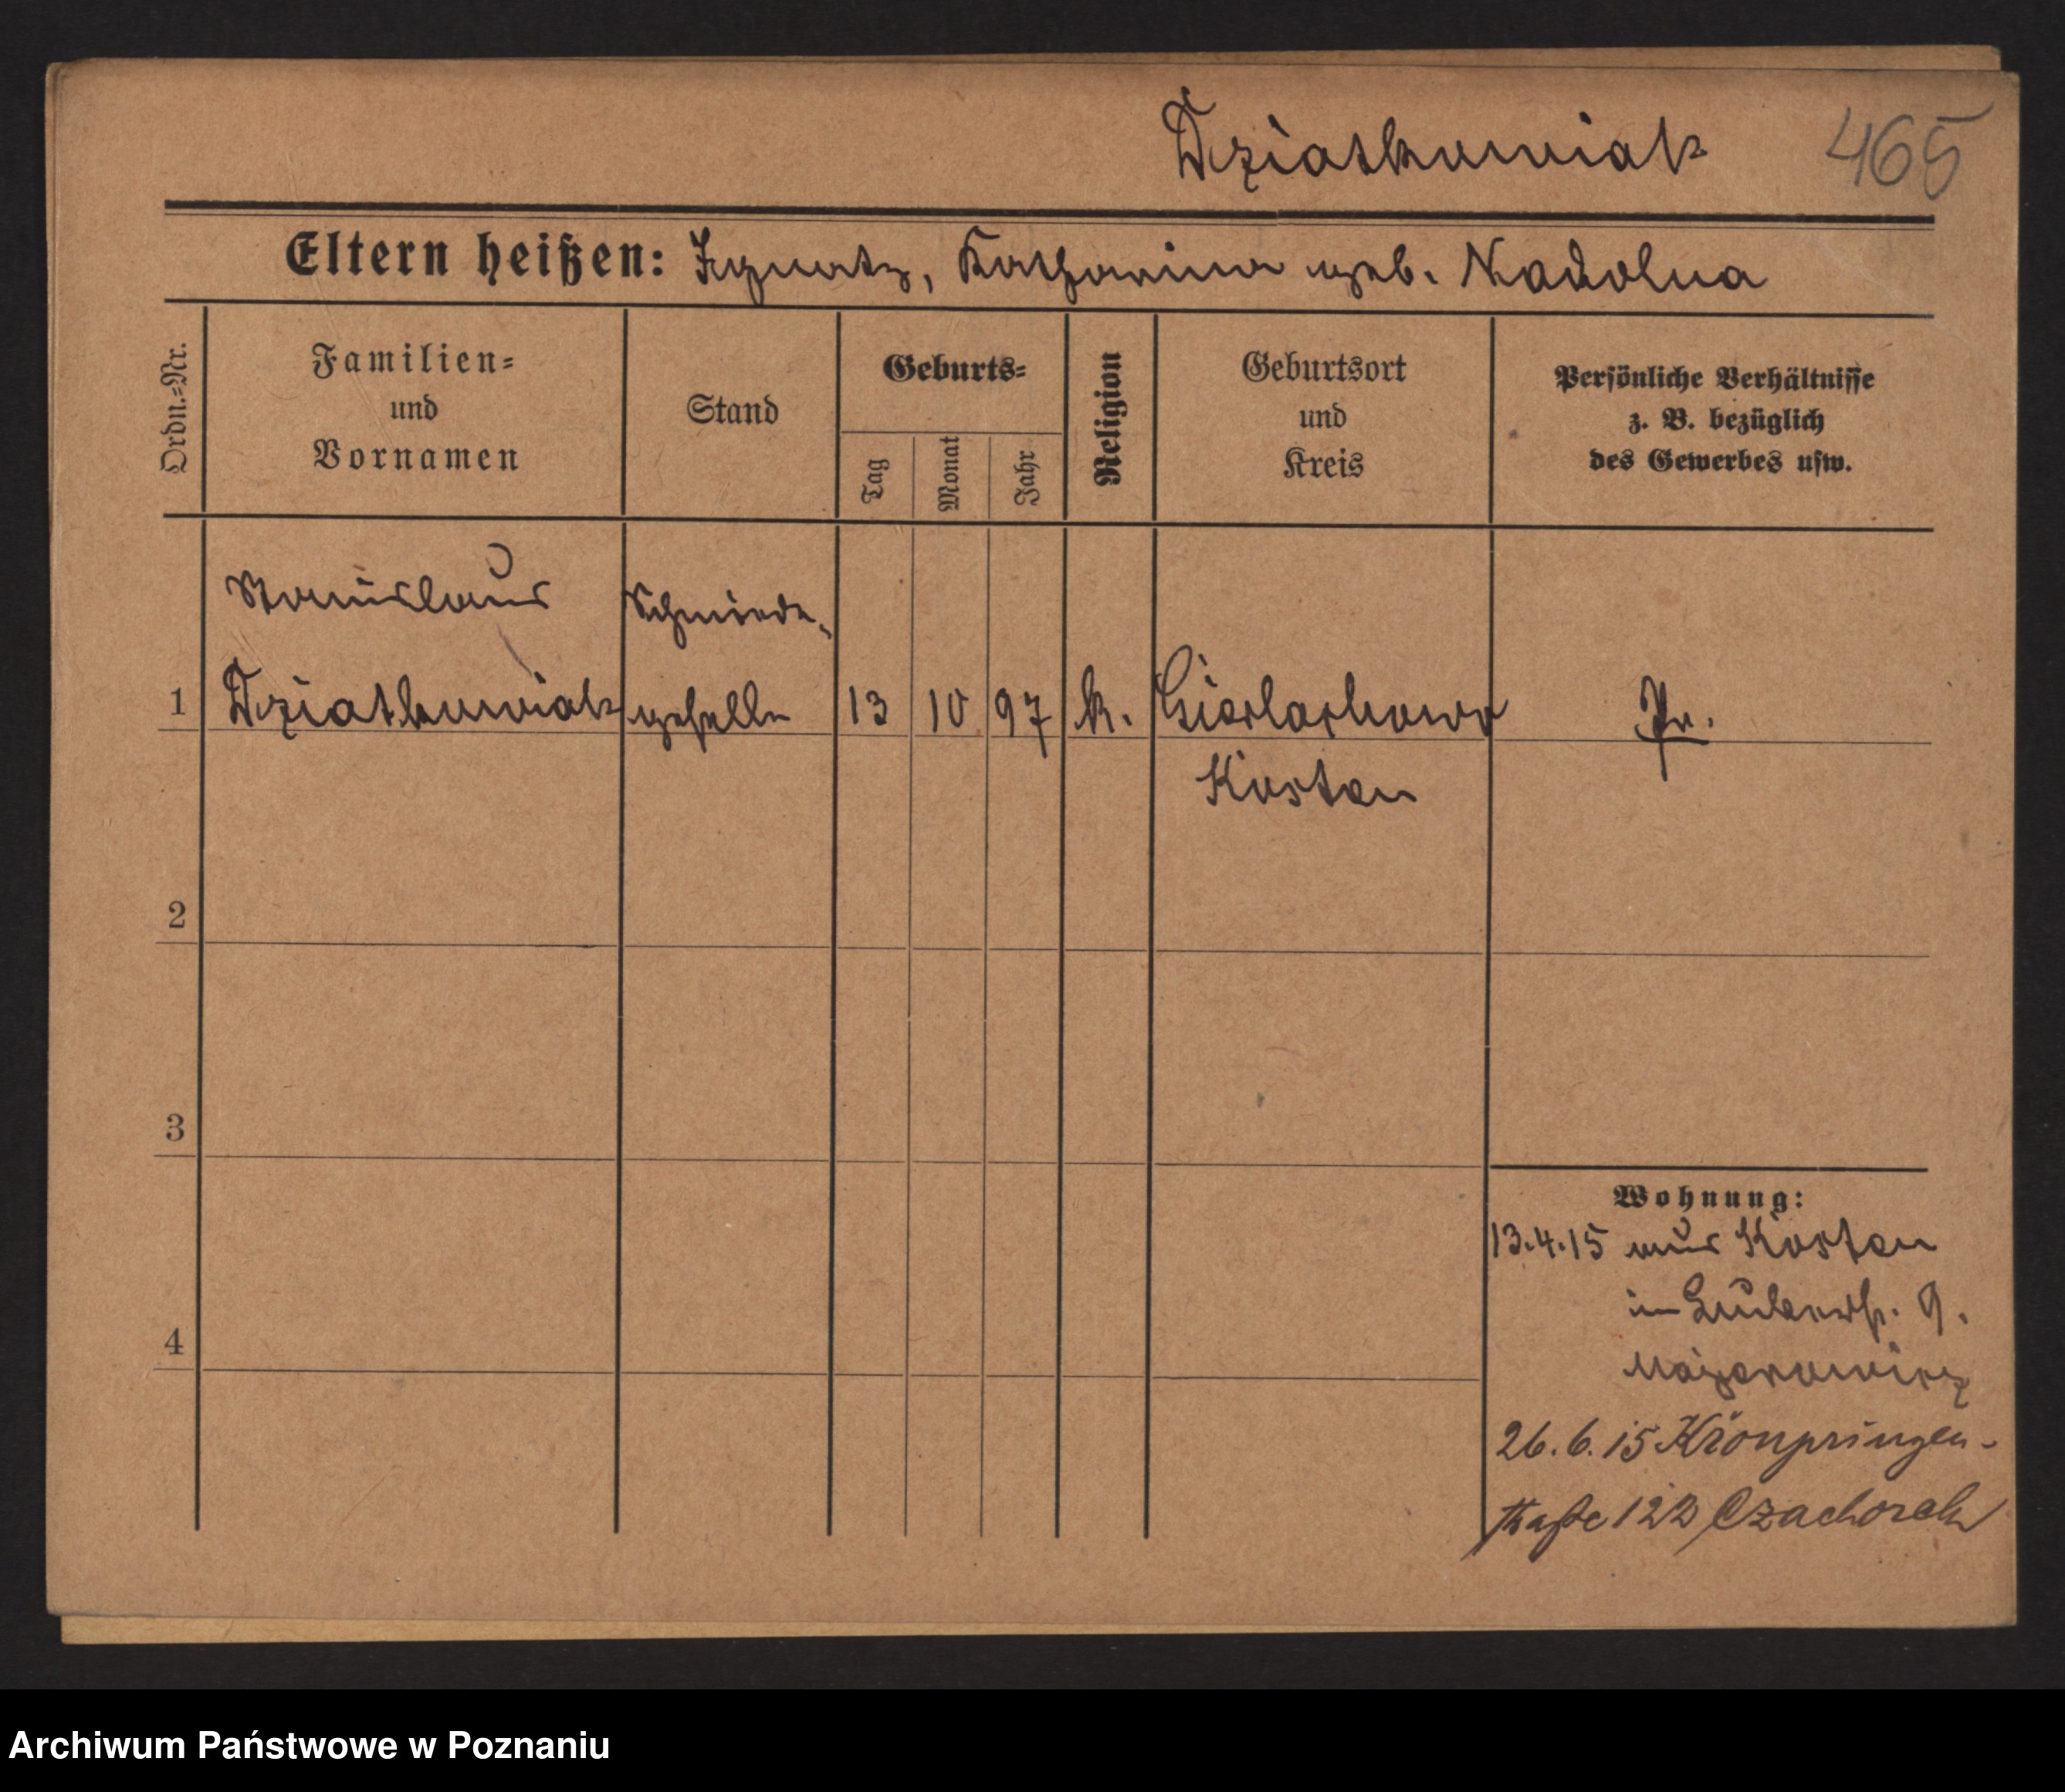 Dziatkowiak 465
Eltern heißen: Ignatz, Katharina geb. Nadolna
Ordn.-Nr.
Familien-
und
Vornamen
Stand
Geburts-
Tag
Monat
Jahr
Religion
Geburtsort
und
Kreis
Persönliche Verhältnisse
z. B. bezüglich
des Gewerbes usw.
Stanislaus Schmiede-
1 Dziatkowiak geselle 13 10 97 k. Gierlachowo Pr.
Kosten
2
3
4
Wohnung:
13.4.15 aus Kosten
in 9.
26.6.15 Kronprinzen-
straße 122
Archiwum Państwowe w Poznaniu